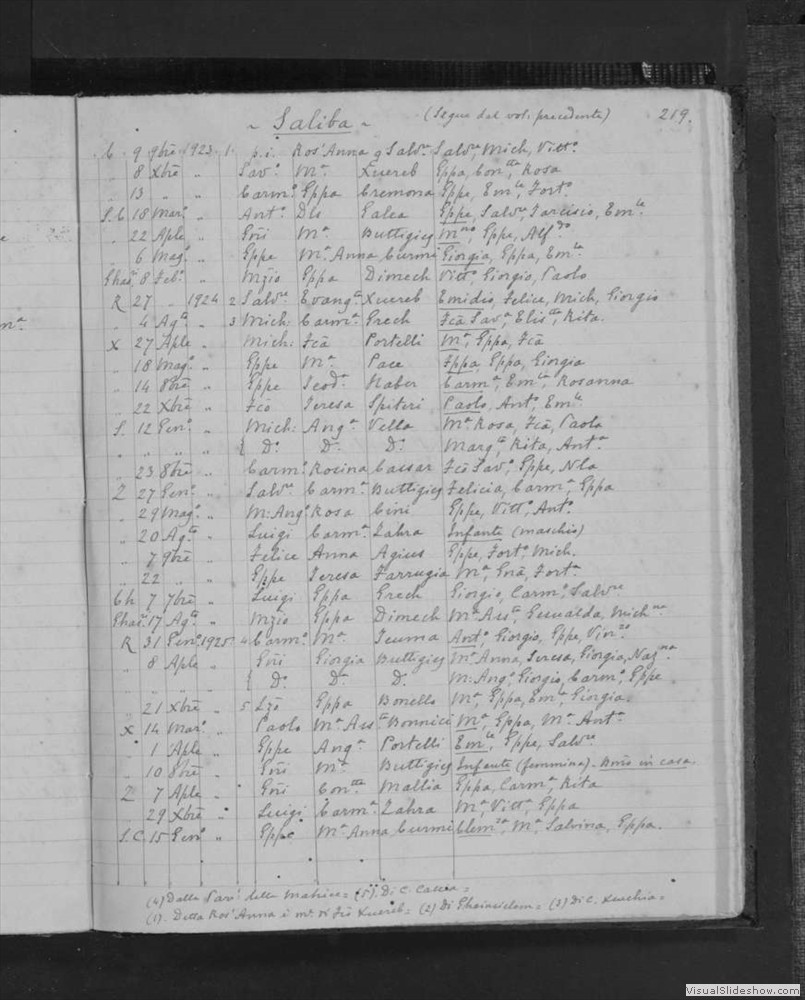 ~ Saliba ~ (Segue dal vol. precedente) 219.
C 9 9bre 1923 1. p.i. Ros'Anna q Salvre Salvre, Mich, Vitto.
„ 8 Xbre „ Savo. Ma. Xuereb Eppa, Contta, Rosa
„ 13 „ „ Carmo. Eppa Cremona Eppe, Emle, Forto.
S.C 18 Maro. „ Anto. Dls Galea Eppe, Salvre, Tarcisio, Emle.
„ 22 Aple „ Gñi Ma. Buttigieg Mno, Eppe, Alfdo
„ 6 Mago. „ Eppe Ma. Anna Curmi Giorgia, Eppa, Emla.
Għasi. 8 Febo. „ Mzio Eppa Dimech Vitto, Giorgio, Paolo
R 27 „ 1924 2 Salvre Evangta Xuereb Emidio, Felice, Mich, Giorgio
„ 4 Agto „ 3 Mich: Carma. Grech Fcã Sava, Elistta, Rita.
X 27 Aple „ Mich: Fcã Portelli Ma, Eppa, Fcã
„ 18 Mago. „ Eppe Ma. Pace Eppa, Eppa, Giorgia
„ 14 8bre „ Eppe Teoda. Naber Carma, Emla, Rosanna
„ 22 Xbre „ Fco Teresa Spiteri Paolo, Anto, Emle.
S. 12 Geno. „ Mich: Anga. Vella Ma. Rosa, Fcã, Paola
„ „ „ „ { Do. Do. Do. Margta, Rita, Anta.
„ 23 8bre „ Carmo. Rosina Cassar Fcã Sava, Eppe, Nla
Z 27 Geno. „ Salvre Carma. Buttigieg Felicia, Carma, Eppa
„ 29 Mago. „ M: Ango. Rosa Cini Eppe, Vitto, Anto.
„ 20 Agto. „ Luigi Carma. Zahra Infante (maschio)
„ 7 9bre „ Felice Anna Agius Eppe, Forto, Mich.
„ 22 „ „ Eppe Teresa Farrugia Ma, Gnã, Forta.
Ch 7 7bre „ Luigi Eppa Grech Giorgio, Carmo, Salvre
Għasi. 17 Agto. „ Mzio Eppa Dimech Ma. Assta, Gesualda, Michna
R 31 Geno. 1925 4 Carmo. Ma. Teuma Anto, Giorgio, Eppe, Vinzo
„ 8 Aple „ Gñi Giorgia Buttigieg Ma. Anna, Teresa, Giorgia, Nazna.
„ „ „ „ { Do. Do. Do. M: Ango, Giorgio, Carmo, Eppe
„ 21 Xbre „ 5 Lzo Eppa Bonello Ma, Eppa, Emla, Giorgia
X 14 Maro. „ Paolo Ma. Assta Bonnici Ma, Eppa, Ma. Anta.
„ 1 Aple „ Eppe Anga. Portelli Emle, Eppe, Salvre
„ 10 8bre „ Gñi Ma. Buttigieg Infante (femmina). in casa.
Z 7 Aple „ Gñi Contta Mallia Eppa, Carma, Rita
„ 29 Xbre „ Luigi Carma. Zahra Ma, Vitta, Eppa
S.C. 15 Geno. „ Eppe Ma. Anna Curmi Clemza, Ma, Salvina, Eppa.
(4) Dalla Para. della Matrice = (5) Di C. Caccia =
(1) Detta Ros'Anna è mo. di Fco Xuereb = (2) Di Ghainsielem = (3) Di C. Xeuchia =
VisualSlideshow.com